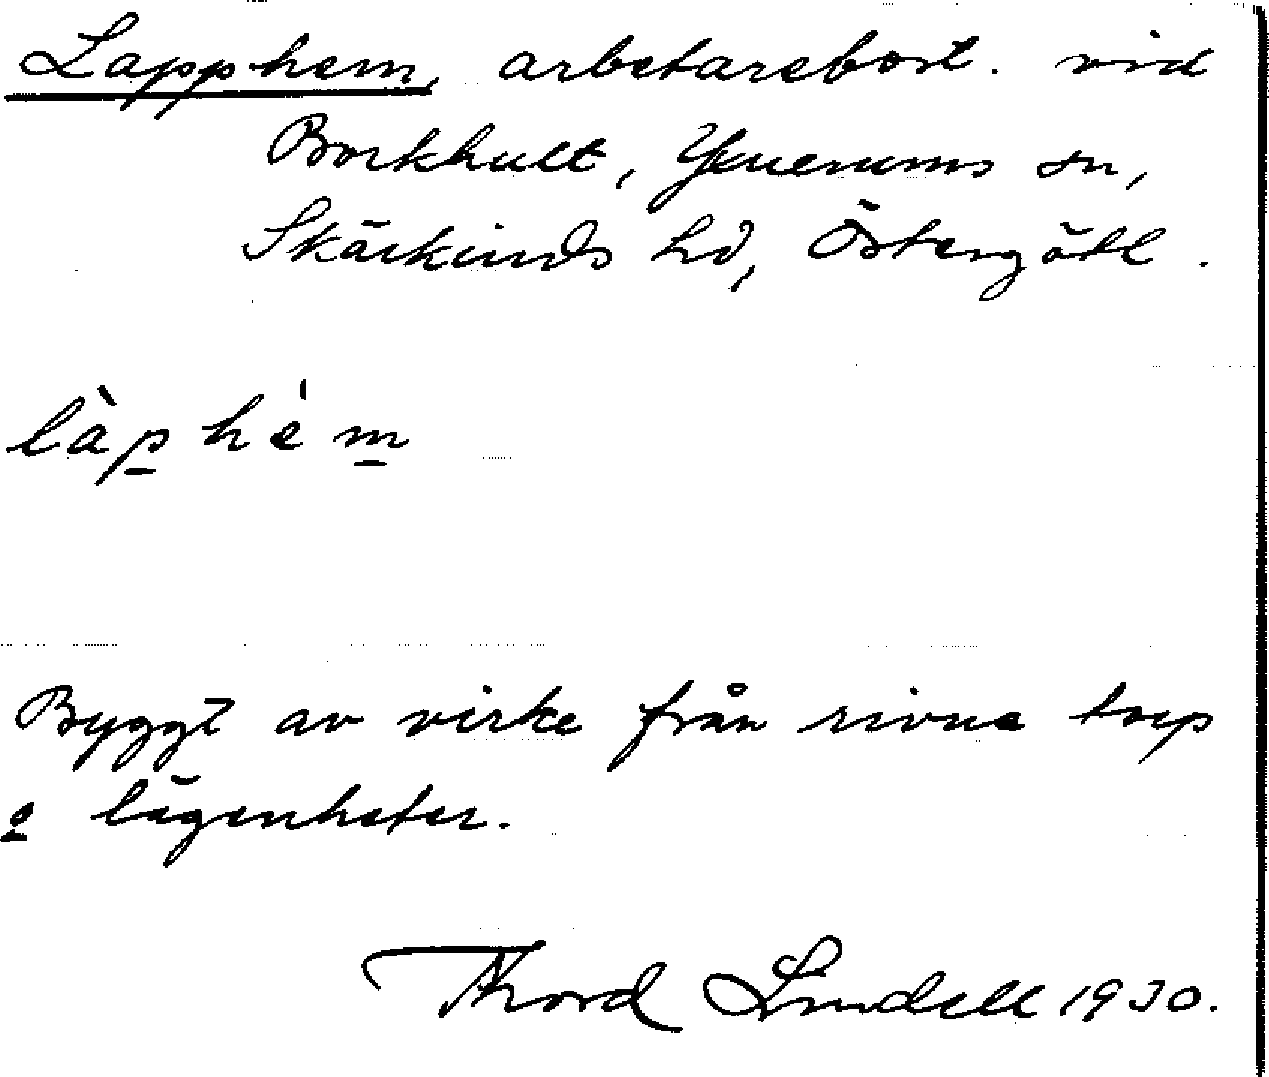 Lapphem, arbetarebost. vid
Borkhult, Yxnerums sn,
Skärkinds hd, Östergötl.
làp hé m
Byggt av virke från rivna torp
o lägenheter.
Thord Lindell 1930.